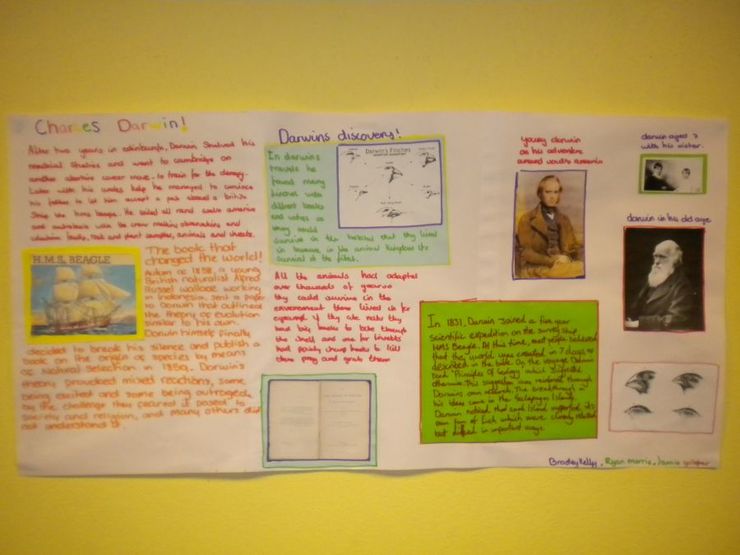 Charles Darwin!
After two years in edinburgh, Darwin his
medical studies and went to cambridge on
another abortive career move- to train for the clergy.
Later with his uncles help he managed to convince
his father to let him accept a aboard a british
Ship the hms beagle. He sailed all round south america
and australasia with the crew making observations and
rock and plant samples, animals and insects.
H.M.S. BEAGLE
The book that
changed the world!
Autum of 1858, a young
British naturalist Alfred
Russel wallace working
in Indonesia, sent a paper
to Darwin that outlined
the theory of evolution
similar to his own.
Darwin himself finally
decided to break his silence and publish a
book on the origin of species by means
of Natural selection in 1859. Darwin's
theory provoked mixed reactions, some
being excited and some being outraged
by the challenge they posed to
society and religion, and many others did
not understand it.
Darwins discovery!
In darwins
travels he
found many
finches with
different beaks
and
survive in the habitat that they lived
in because in the animal kingdom its
survival of the fittest.
Darwin's Finches
All the animals had adapted
over thousands of years so
they could survive in the
environment they lived in for
example if they ate nuts they
had big beaks to brake through
the shell and
had pointy sharp beaks to kill
there prey and grab them
young darwin
on his adventure
around south america
darwin aged 7
with his sister.
darwin in his old age
In 1831, Darwin Joined a five year
scientific expedition on the survey ship
HMS Beagle. At this time, most people believed
that the world was created in 7 days as
described in the bible. On the voyage Darwin
book 'Principles of Geology' which suggested
otherwise. This suggestion was reinforced through
Darwins own research. The breakthrough in
his ideas came in the Galapagos Islands.
Darwin noticed that each Island supported its
own form of finch which were closely related
but differed in important ways.
Bradley Kelly, Ryan morris, Jamie